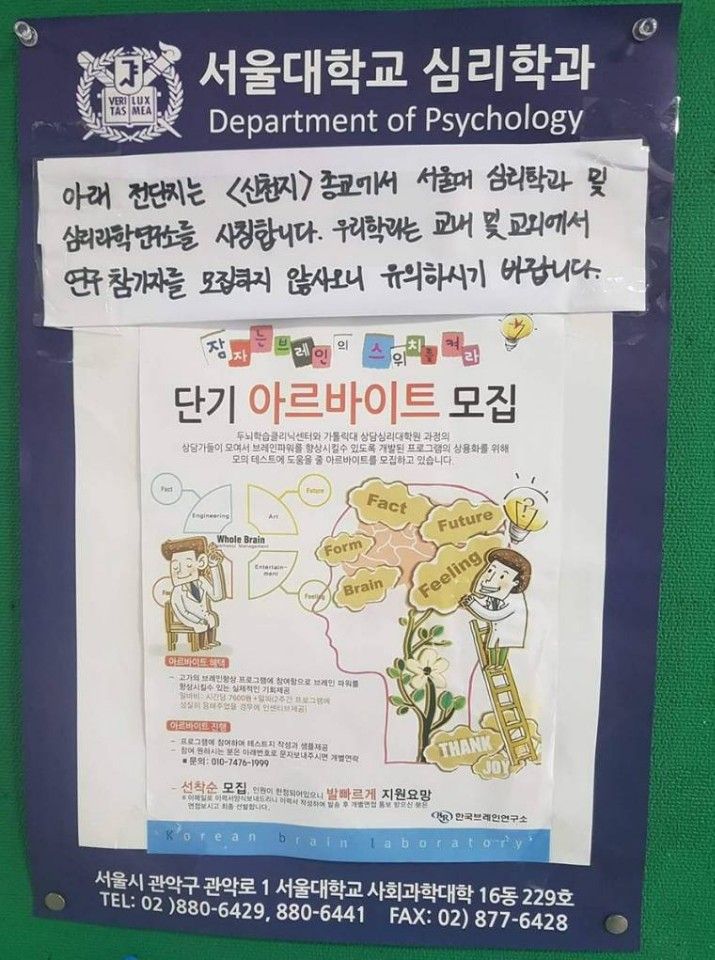 VERI LUX
TAS MEA
서울대학교 심리학과
Department of Psychology
아래 전단지는 <신천지> 종교에서 서울대 심리학과 및
심리과학연구소를 사칭합니다. 우리학과는 교내 및 교외에서
연구 참가자를 모집하지 않사오니 유의하시기 바랍니다.
잠자는브레인의 스위치를켜라
단기 아르바이트 모집
두뇌학습클리닉센터와 가톨릭대 상담심리대학원 과정의
상담가들이 모여서 브레인파워를 향상시킬수 있도록 개발된 프로그램의 상용화를 위해
모의 테스트에 도움을 줄 아르바이트를 모집하고 있습니다.
Fact
Future
Engineering
Art
Whole Brain
Entertain-
ment
Feeling
Fact
Future
Form
Brain
Feeling
THANK
JOY
아르바이트 혜택
- 고가의 브레인향상 프로그램에 참여함으로 브레인 파워를
향상시킬수 있는 실제적인 기회제공
알바비: 시간당 7600원+알파(2주간 프로그램에
성실히 참여주었을 경우에 인센티브제공)
아르바이트 진행
- 프로그램에 참여하여 테스트지 작성과 샘플제공
- 참여 원하시는 분은 아래번호로 문자보내주시면 개별연락
■ 문의: 010-7476-1999
- 선착순 모집, 인원이 한정되어있으니 발빠르게 지원요망
※이메일로 이력서양식보내드리니 이력서 작성하여 발송 후 개별면접 통보 받으신 분은
면접보시고 최종 선별합니다.
한국브레인연구소
Korean brain laboratory
서울시 관악구 관악로 1 서울대학교 사회과학대학 16동 229호
TEL: 02 )880-6429, 880-6441 FAX: 02) 877-6428